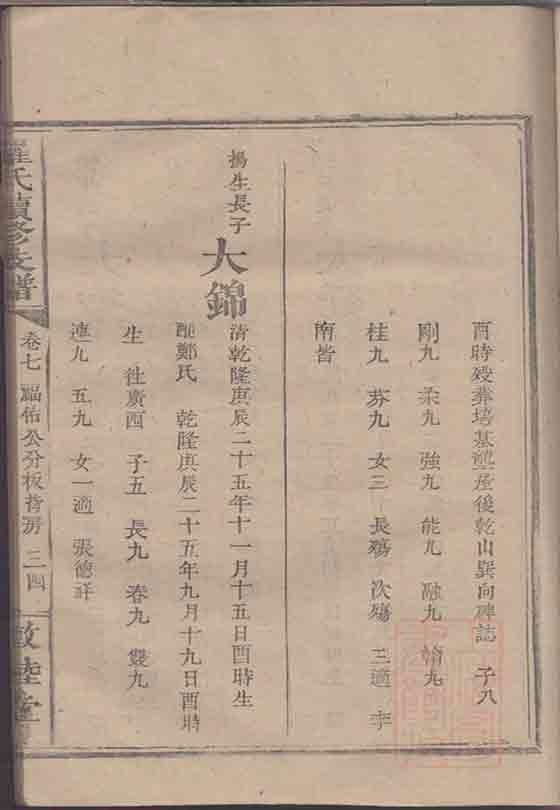 酉時歿葬培基塋垕後乾山巽向碑誌 子八
剛九 柔九 強九 能九 融九 翰九
桂九 芬九 女三 長殤 次殤 三適 李
南皆
揚生長子
大錦
清乾隆庚辰二十五年十一月十五日酉時生
配鄭氏 乾隆庚辰二十五年九月十九日酉時
生 徃廣西 子五 長九 春九 雙九
連九 五九 女一適 張德祥
羅氏續修支譜
卷七 福佑公分板背房 三四
敦睦堂